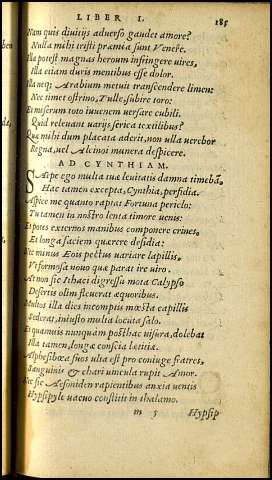 LIBER I. 185
Nam quis diuitijs aduerso gaudet amore?
Nulla mihi tristi præmia sunt Venere.
Illa potest magnas heroum infringere uires,
Illa etiam duris mentibus esse dolor.
Illa neq; Arabium metuit transcendere limen:
Nec timet ostrino, Tulle, subire toro:
Et miserum toto iuuenem uersare cubili.
Quid releuant uarijs serica textilibus?
Quæ mihi dum placata aderit, non ulla uerebor
Regna, uel Alcinoi munera despicere.
AD CYNTHIAM.
SAepe ego multa tuæ leuitatis damna timebã,
Hac tamen excepta, Cynthia, perfidia.
Aspice me quanto raptat Fortuna periclo:
Tu tamen in nostro lenta timore uenis:
Et potes externos manibus componere crines,
Et longa faciem quærere desidia:
Nec minus Eois pectus uariare lapillis,
Vt formosa nouo quæ parat ire uiro.
At non sic Ithaci digressu mota Calypso
Desertis olim fleuerat æquoribus.
Multos illa dies incomptis mœsta capillis
Sederat, iniusto multa locuta salo.
Et quamuis nunquam posthac uisura, dolebat
Illa tamen, longæ conscia lætitiæ.
Alphesibœa suos ulta est pro coniuge fratres,
Sanguinis & chari uincula rupit Amor.
Nec sic Aesoniden rapientibus anxia uentis
Hypsipyle uacuo constitit in thalamo.
m 5 Hypsip